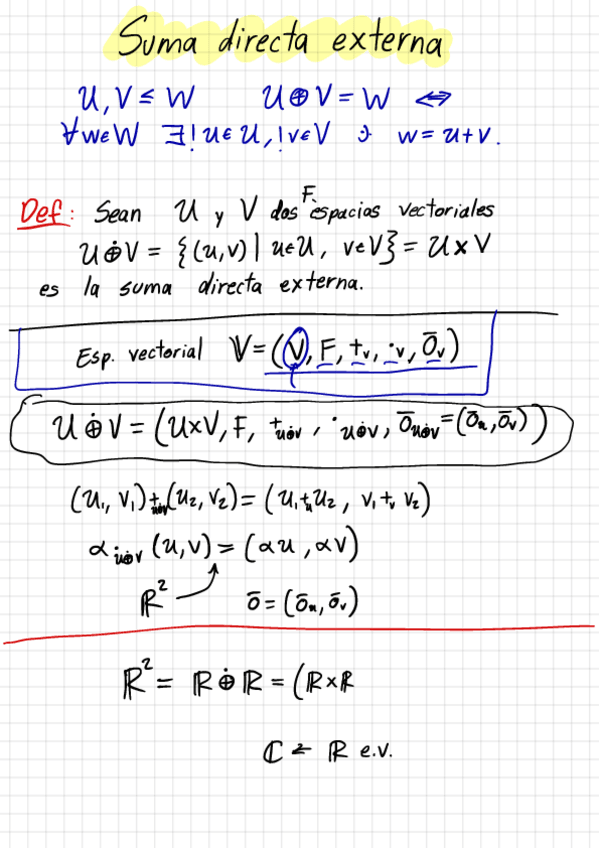 Suma directa externa
U, V ≤ W U ⊕ V = W ⟺
∀w∈W ∃! u∈U, !v∈V ∋ w = u+v.
Def: Sean U y V dos F. espacios vectoriales
U ⊕̇ V = {(u,v) | u∈U, v∈V} = U×V
es la suma directa externa.
Esp. vectorial 𝕍 = (V, F, +ᵥ, ·ᵥ, Ōᵥ)
U ⊕̇ V = (U×V, F, +_{U⊕̇V}, ·_{U⊕̇V}, Ō_{U⊕̇V} = (Ō_u, Ō_v))
(u₁, v₁) +_{U⊕̇V} (u₂, v₂) = (u₁ +_u u₂, v₁ +_v v₂)
α ·_{U⊕̇V} (u,v) = (αu, αv)
ℝ² ō = (ō_u, ō_v)
ℝ² = ℝ ⊕̇ ℝ = (ℝ×ℝ
ℂ ← ℝ e.v.